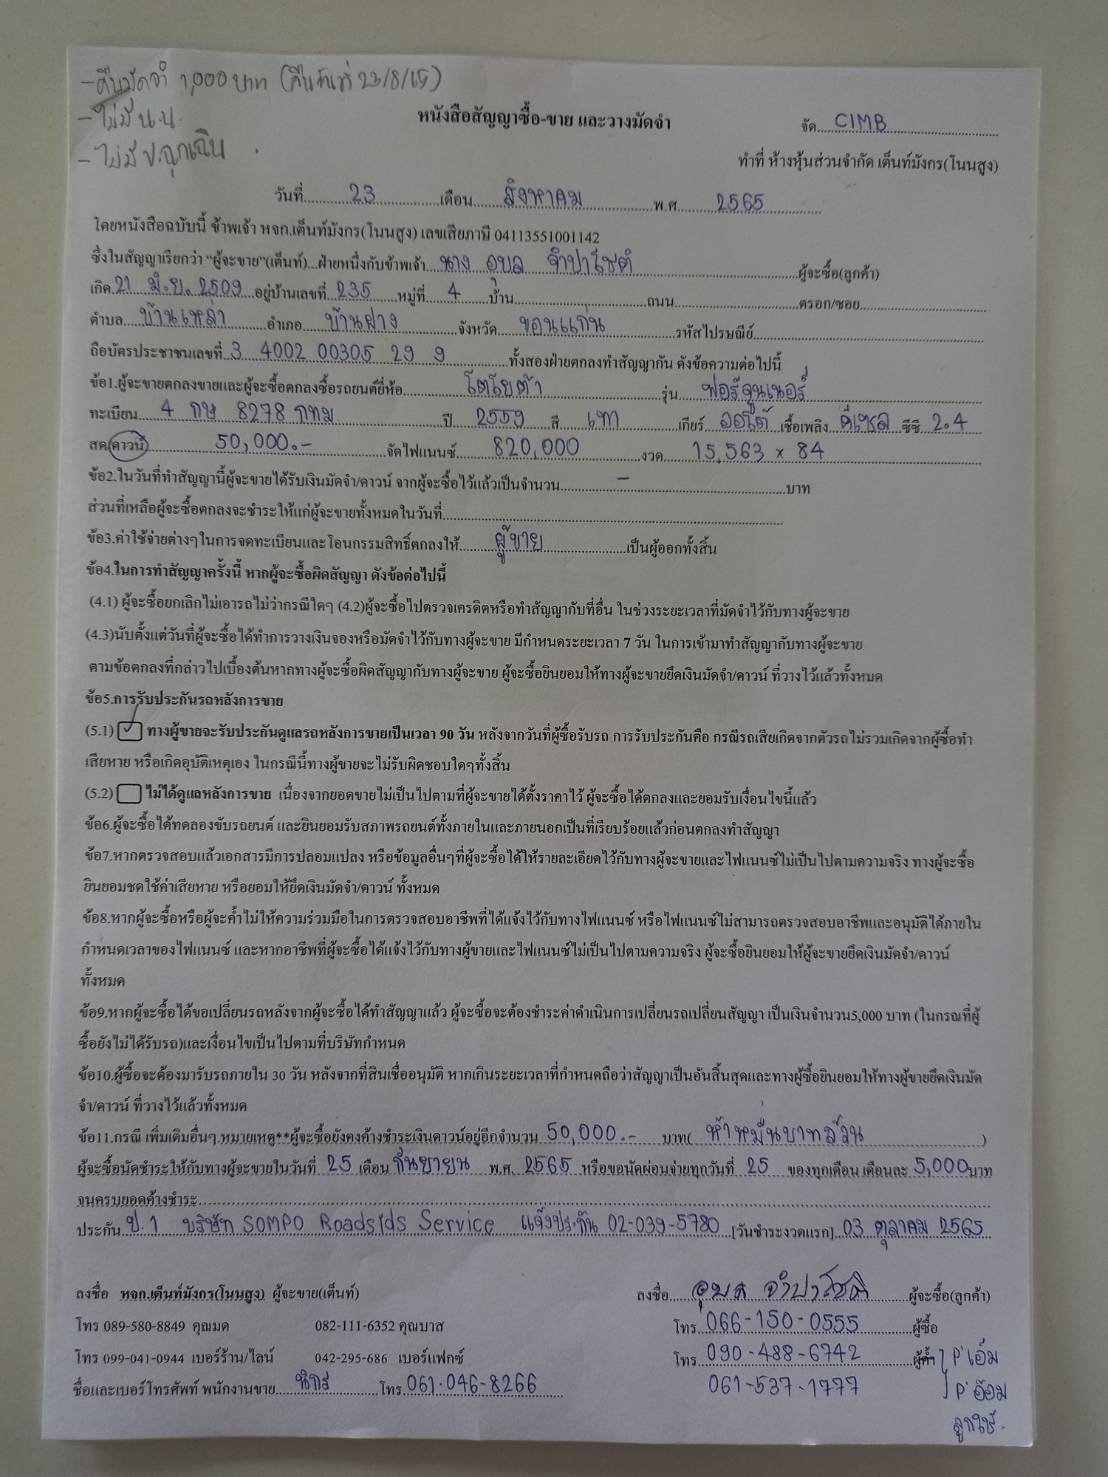 -คืนมัดจำ 1,000 บาท (คืนวันที่ 23/8/65)
-ไม่มี น.น.
-ไม่มี ป.ฉุกเฉิน.
หนังสือสัญญาซื้อ-ขาย และวางมัดจำ
จัด...CIMB...
ทำที่ ห้างหุ้นส่วนจำกัด เต็นท์มังกร(โนนสูง)
วันที่...23...เดือน...สิงหาคม...พ.ศ....2565...
โดยหนังสือฉบับนี้ ข้าพเจ้า หจก.เต็นท์มังกร(โนนสูง) เลขเสียภาษี 04113551001142
ซึ่งในสัญญาเรียกว่า "ผู้จะขาย"(เต็นท์)...ฝ่ายหนึ่งกับข้าพเจ้า...นาง อุบล จำปาโชติ...ผู้จะซื้อ(ลูกค้า)
เกิด 21 มิ.ย. 2509 อยู่บ้านเลขที่ 235 หมู่ที่ 4 บ้าน...ถนน...ตรอก/ซอย...
ตำบล...บ้านเหล่า...อำเภอ...บ้านฝาง...จังหวัด...ขอนแก่น...รหัสไปรษณีย์...
ถือบัตรประชาชนเลขที่ 3 4002 00305 29 9...ทั้งสองฝ่ายตกลงทำสัญญากัน ดังข้อความต่อไปนี้
ข้อ1.ผู้จะขายตกลงขายและผู้จะซื้อตกลงซื้อรถยนต์ยี่ห้อ...โตโยต้า...รุ่น...ฟอร์จูนเนอร์
ทะเบียน...4 กษ 8278 กทม...ปี 2559 สี...เทา...เกียร์...ออโต้...เชื้อเพลิง ดีเซล ซีซี 2.4
สด(ดาวน์)...50,000.-...จัดไฟแนนซ์...820,000...งวด...15,563 x 84
ข้อ2.ในวันที่ทำสัญญานี้ผู้จะขายได้รับเงินมัดจำ/ดาวน์ จากผู้จะซื้อไว้แล้วเป็นจำนวน...-...บาท
ส่วนที่เหลือผู้จะซื้อตกลงจะชำระให้แก่ผู้จะขายทั้งหมดในวันที่...
ข้อ3.ค่าใช้จ่ายต่างๆในการจดทะเบียนและโอนกรรมสิทธิ์ตกลงให้...ผู้ขาย...เป็นผู้ออกทั้งสิ้น
ข้อ4.ในการทำสัญญาครั้งนี้ หากผู้จะซื้อผิดสัญญา ดังข้อต่อไปนี้
(4.1) ผู้จะซื้อยกเลิกไม่เอารถไม่ว่ากรณีใดๆ (4.2)ผู้จะซื้อไปตรวจเครดิตหรือทำสัญญากับที่อื่น ในช่วงระยะเวลาที่มัดจำไว้กับทางผู้จะขาย
(4.3)นับตั้งแต่วันที่ผู้จะซื้อได้ทำการวางเงินจองหรือมัดจำไว้กับทางผู้จะขาย มีกำหนดระยะเวลา 7 วัน ในการเข้ามาทำสัญญากับทางผู้จะขาย
ตามข้อตกลงที่กล่าวไปเบื้องต้นหากทางผู้จะซื้อผิดสัญญากับทางผู้จะขาย ผู้จะซื้อยินยอมให้ทางผู้จะขายยึดเงินมัดจำ/ดาวน์ ที่วางไว้แล้วทั้งหมด
ข้อ5.การรับประกันรถหลังการขาย
(5.1) ✓ ทางผู้ขายจะรับประกันดูแลรถหลังการขายเป็นเวลา 90 วัน หลังจากวันที่ผู้ซื้อรับรถ การรับประกันคือ กรณีรถเสียเกิดจากตัวรถ ไม่รวมเกิดจากผู้ซื้อทำ
เสียหาย หรือเกิดอุบัติเหตุเอง ในกรณีนี้ทางผู้ขายจะไม่รับผิดชอบใดๆทั้งสิ้น
(5.2) ไม่ได้ดูแลหลังการขาย เนื่องจากยอดขายไม่เป็นไปตามที่ผู้จะขายได้ตั้งราคาไว้ ผู้จะซื้อได้ตกลงและยอมรับเงื่อนไขนี้แล้ว
ข้อ6.ผู้จะซื้อได้ทดลองขับรถยนต์ และยินยอมรับสภาพรถยนต์ทั้งภายในและภายนอกเป็นที่เรียบร้อยแล้วก่อนตกลงทำสัญญา
ข้อ7.หากตรวจสอบแล้วเอกสารมีการปลอมแปลง หรือข้อมูลอื่นๆที่ผู้จะซื้อได้ให้รายละเอียดไว้กับทางผู้จะขายและไฟแนนซ์ไม่เป็นไปตามความจริง ทางผู้จะซื้อ
ยินยอมชดใช้ค่าเสียหาย หรือยอมให้ยึดเงินมัดจำ/ดาวน์ ทั้งหมด
ข้อ8.หากผู้จะซื้อหรือผู้จะค้ำไม่ให้ความร่วมมือในการตรวจสอบอาชีพที่ได้แจ้งไว้กับทางไฟแนนซ์ หรือไฟแนนซ์ไม่สามารถตรวจสอบอาชีพและอนุมัติได้ภายใน
กำหนดเวลาของไฟแนนซ์ และหากอาชีพที่ผู้จะซื้อได้แจ้งไว้กับทางผู้ขายและไฟแนนซ์ไม่เป็นไปตามความจริง ผู้จะซื้อยินยอมให้ผู้จะขายยึดเงินมัดจำ/ดาวน์
ทั้งหมด
ข้อ9.หากผู้จะซื้อได้ขอเปลี่ยนรถหลังจากผู้จะซื้อได้ทำสัญญาแล้ว ผู้จะซื้อจะต้องชำระค่าดำเนินการเปลี่ยนรถเปลี่ยนสัญญา เป็นเงินจำนวน5,000 บาท (ในกรณที่ผู้
ซื้อยังไม่ได้รับรถ)และเงื่อนไขเป็นไปตามที่บริษัทกำหนด
ข้อ10.ผู้ซื้อจะต้องมารับรถภายใน 30 วัน หลังจากที่สินเชื่ออนุมัติ หากเกินระยะเวลาที่กำหนดถือว่าสัญญาเป็นอันสิ้นสุดและทางผู้ซื้อยินยอมให้ทางผู้ขายยึดเงินมัด
จำ/ดาวน์ ที่วางไว้แล้วทั้งหมด
ข้อ11.กรณี เพิ่มเติมอื่นๆ.หมายเหตุ**ผู้จะซื้อยังคงค้างชำระเงินดาวน์อยู่อีกจำนวน 50,000.- บาท( ห้าหมื่นบาทถ้วน )
ผู้จะซื้อนัดชำระให้กับทางผู้จะขายในวันที่ 25 เดือน กันยายน พ.ศ. 2565 หรือขอนัดผ่อนจ่ายทุกวันที่ 25 ของทุกเดือน เดือนละ 5,000 บาท
จนครบยอดค้างชำระ...
ประกัน ป.1 บริษัท SOMPO Roadsids Service แจ้งประกัน 02-039-5780 [วันชำระงวดแรก] 03 ตุลาคม 2565
ลงชื่อ หจก.เต็นท์มังกร(โนนสูง) ผู้จะขาย(เต็นท์)
ลงชื่อ...อุบล จำปาโชติ...ผู้จะซื้อ(ลูกค้า)
โทร 089-580-8849 คุณมด 082-111-6352 คุณบาส
โทร 066-150-0555 ผู้ซื้อ
โทร 099-041-0944 เบอร์ร้าน/ไลน์ 042-295-686 เบอร์แฟกซ์
โทร 090-488-6742 ผู้ค้ำ P'เอ็ม
ชื่อและเบอร์โทรศัพท์ พนักงานขาย...โทร. 061-046-8266
061-537-1777 P'อ้อม